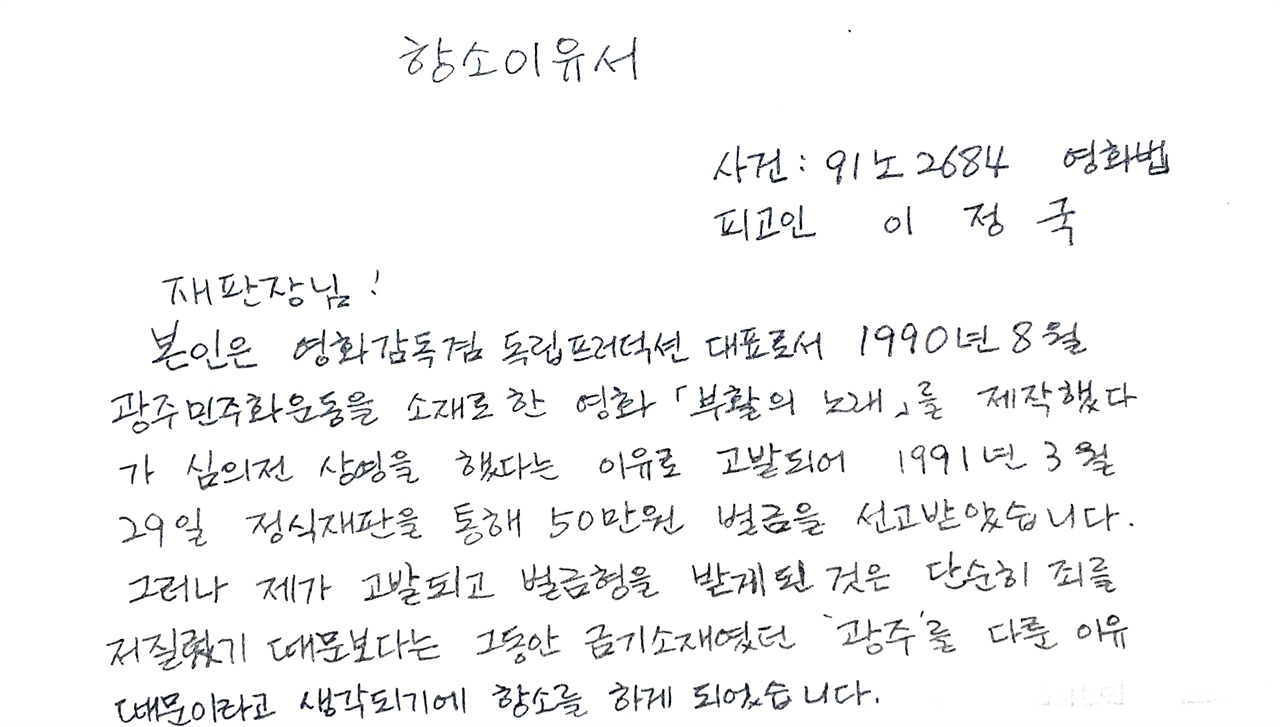 항소이유서
사건 : 91노2684 영화법
피고인 이 정 국
재판장님!
본인은 영화감독겸 독립프러덕션 대표로서 1990년 8월
광주민주화운동을 소재로 한 영화 「부활의 노래」를 제작했다
가 심의전 상영을 했다는 이유로 고발되어 1991년 3월
29일 정식재판을 통해 50만원 벌금을 선고받았습니다.
그러나 제가 고발되고 벌금형을 받게된 것은 단순히 죄를
저질렀기 때문보다는 그동안 금기소재였던 '광주'를 다룬 이유
때문이라고 생각되기에 항소를 하게 되었습니다.